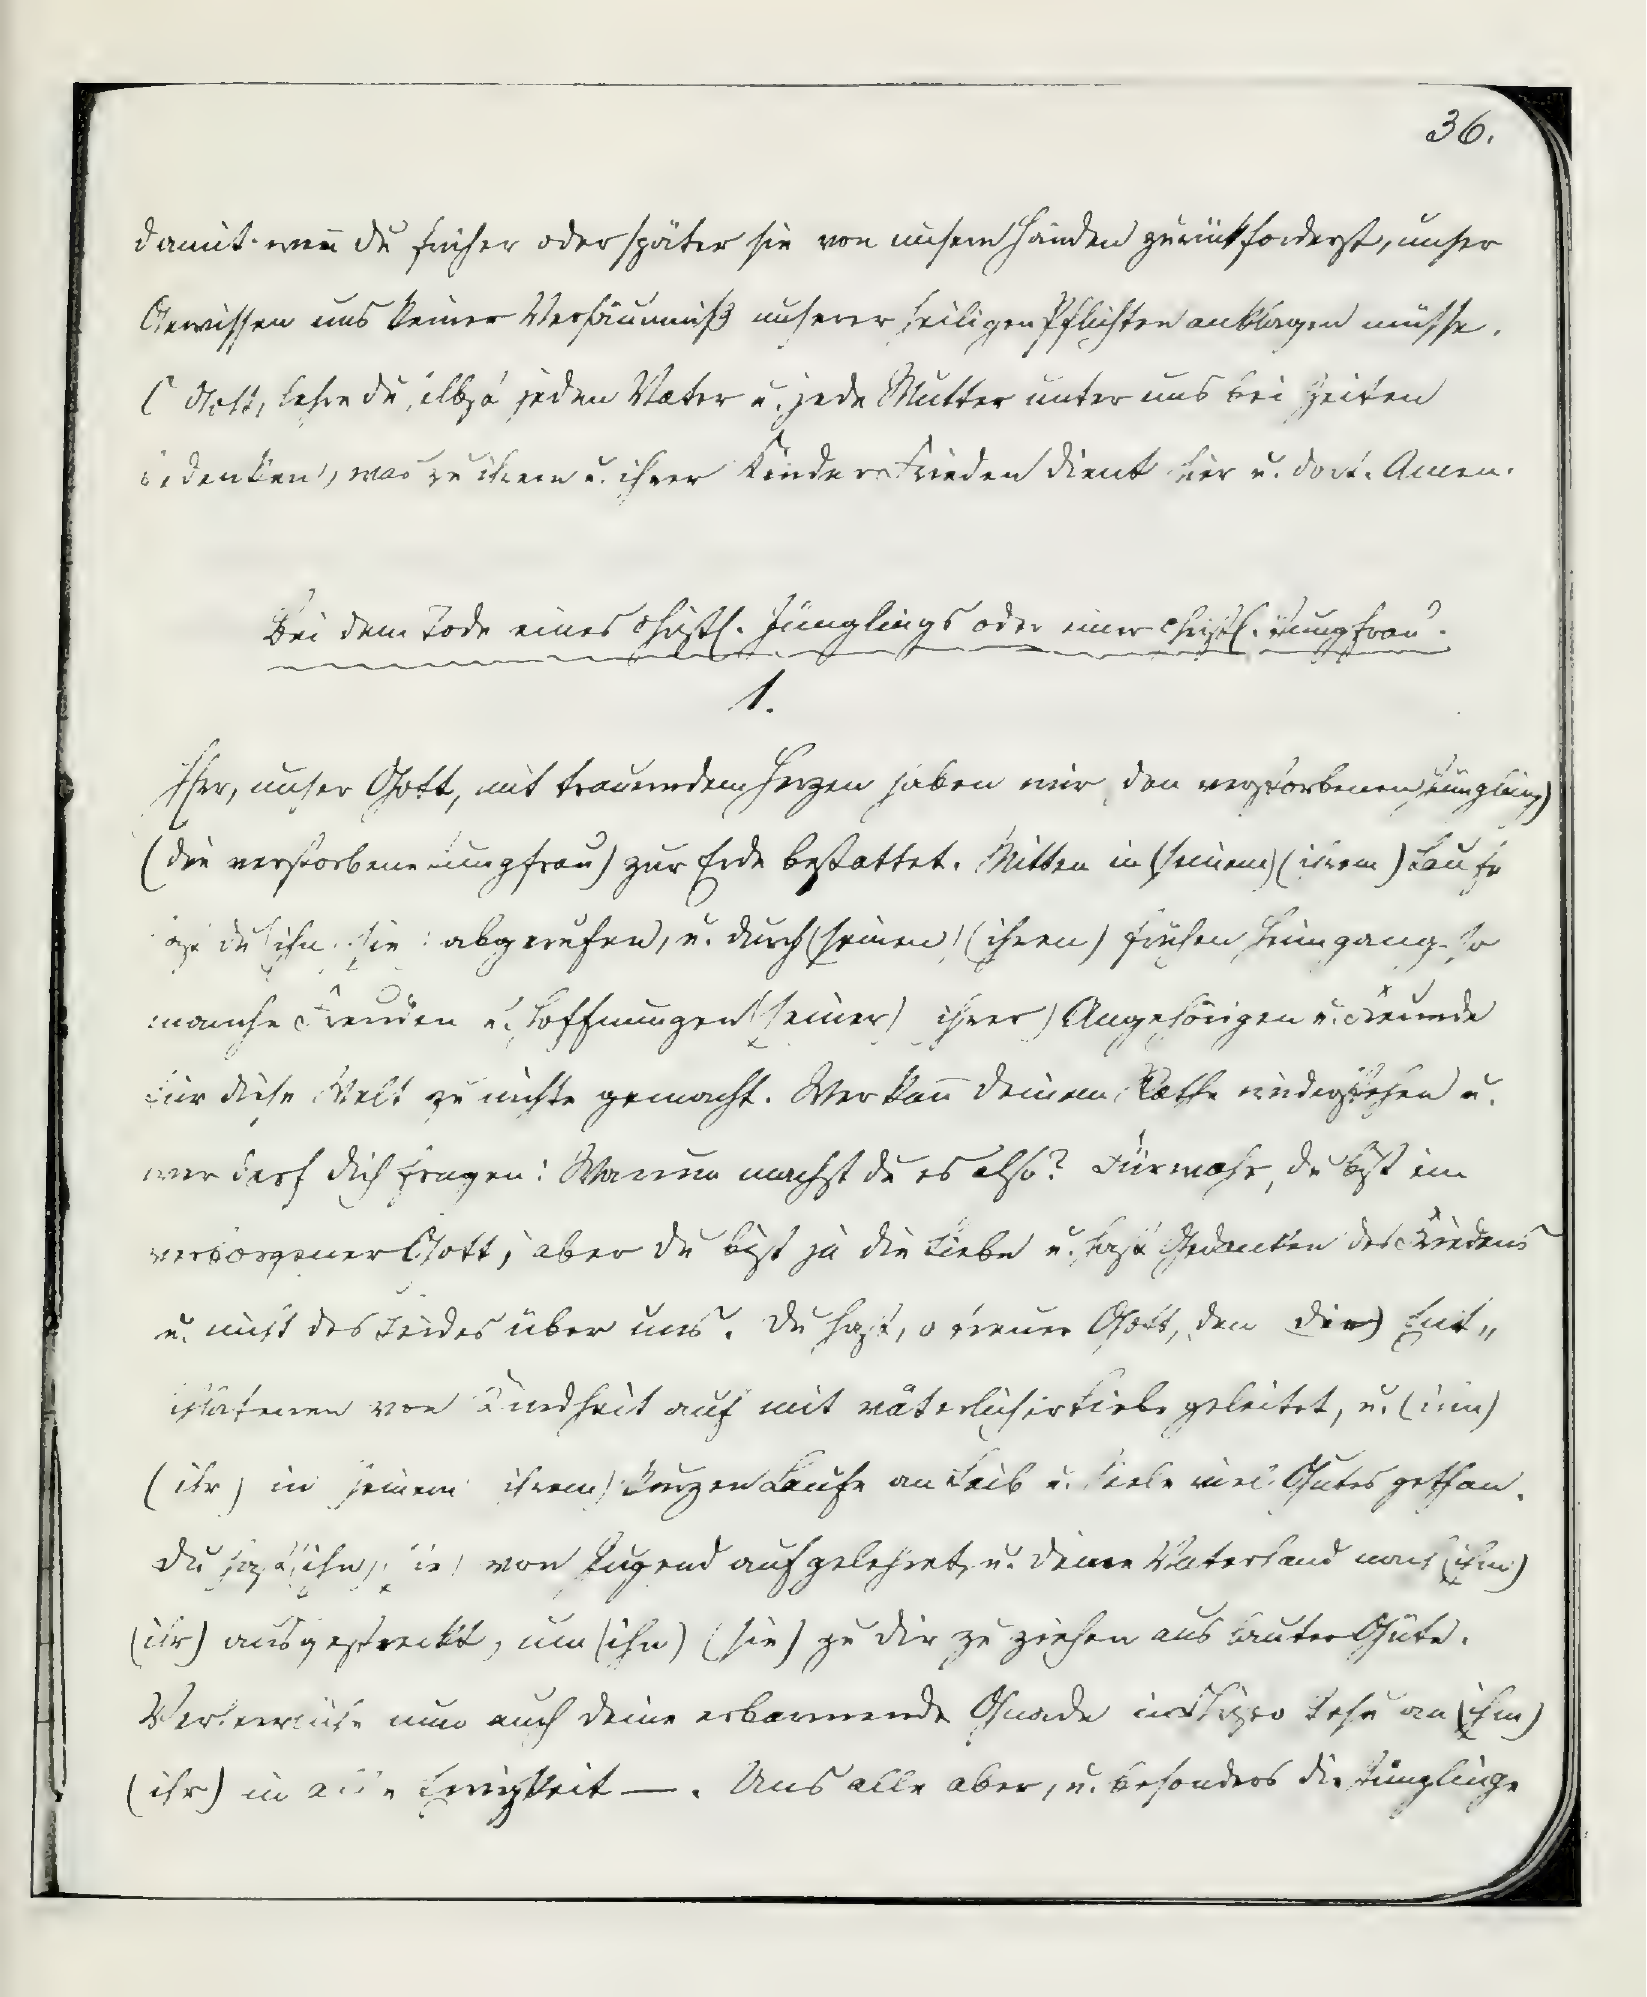 36.
damit wen̄ du früher oder später sie von unsern Händen zurückforderst, unser
Gewissen uns keiner Versäumniß unserer heiligen Pflichten anklagen müsse.
O Gott, lehre du selbst jeden Vater u. jede Mutter unter uns bei Zeiten
bedenken, was zu ihrem u. ihrer Kinder Frieden dient hier u. dort. Amen.
Bei dem Tode eines christl. Jünglings oder einer christl. Jungfrau.
1.
Herr, unser Gott, mit trauerndem Herzen haben wir den verstorbenen Jüngling)
(die verstorbene Jungfrau) zur Erde bestattet. Mitten in (seinem) (ihrem) Laufe
hast du (ihn) (sie) abgerufen, u. durch (seinen) (ihren) frühen Heimgang so
manche Freuden u. Hoffnungen (seiner) (ihrer) Angehörigen u. Freunde
für diese Welt zu nichte gemacht. Wer kan̄ deinem Rathe widerstehen u.
wer darf dich fragen: Warum machst du es also? Fürwahr, du bist ein
verborgener Gott, aber du bist ja die Liebe u. hast Gedanken des Friedens
u. nicht des Leides über uns. Du hast, o treuer Gott, den (die) Ent„
schlafenen von Kindheit auf mit väterlicher Liebe geleitet, u. (ihm)
(ihr) in (seinem) (ihrem) kurzen Laufe an Leib u. Seele viel Gutes gethan.
Du hast (ihn) (sie) von Jugend auf gelehret, u. deine Vaterhand nach (ihm)
(ihr) ausgestreckt, um (ihn) (sie) zu dir zu ziehen aus lauter Güte.
Verherrliche nun auch deine erbarmende Gnade in Christo Jesu an (ihm)
(ihr) in alle Ewigkeit —. Uns alle aber, u. besonders die Jünglinge